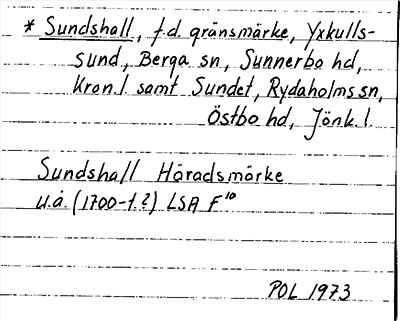 * Sundshall, f.d. gränsmärke, Yxkulls-
sund, Berga sn, Sunnerbo hd,
Kron.l samt Sundet, Rydaholms sn,
Östbo hd, Jönk.l
Sundshall Häradsmärke
u.å. (1700-t.?) LSA F¹⁰
POL 1973